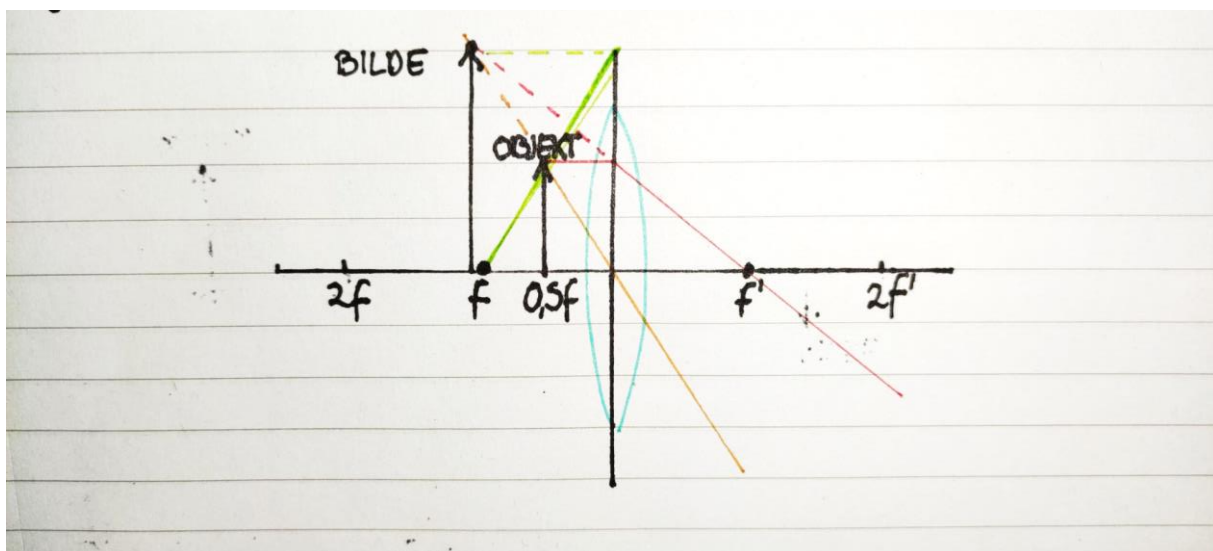 BILDE
OBJEKT
2f f 0,5f f' 2f'